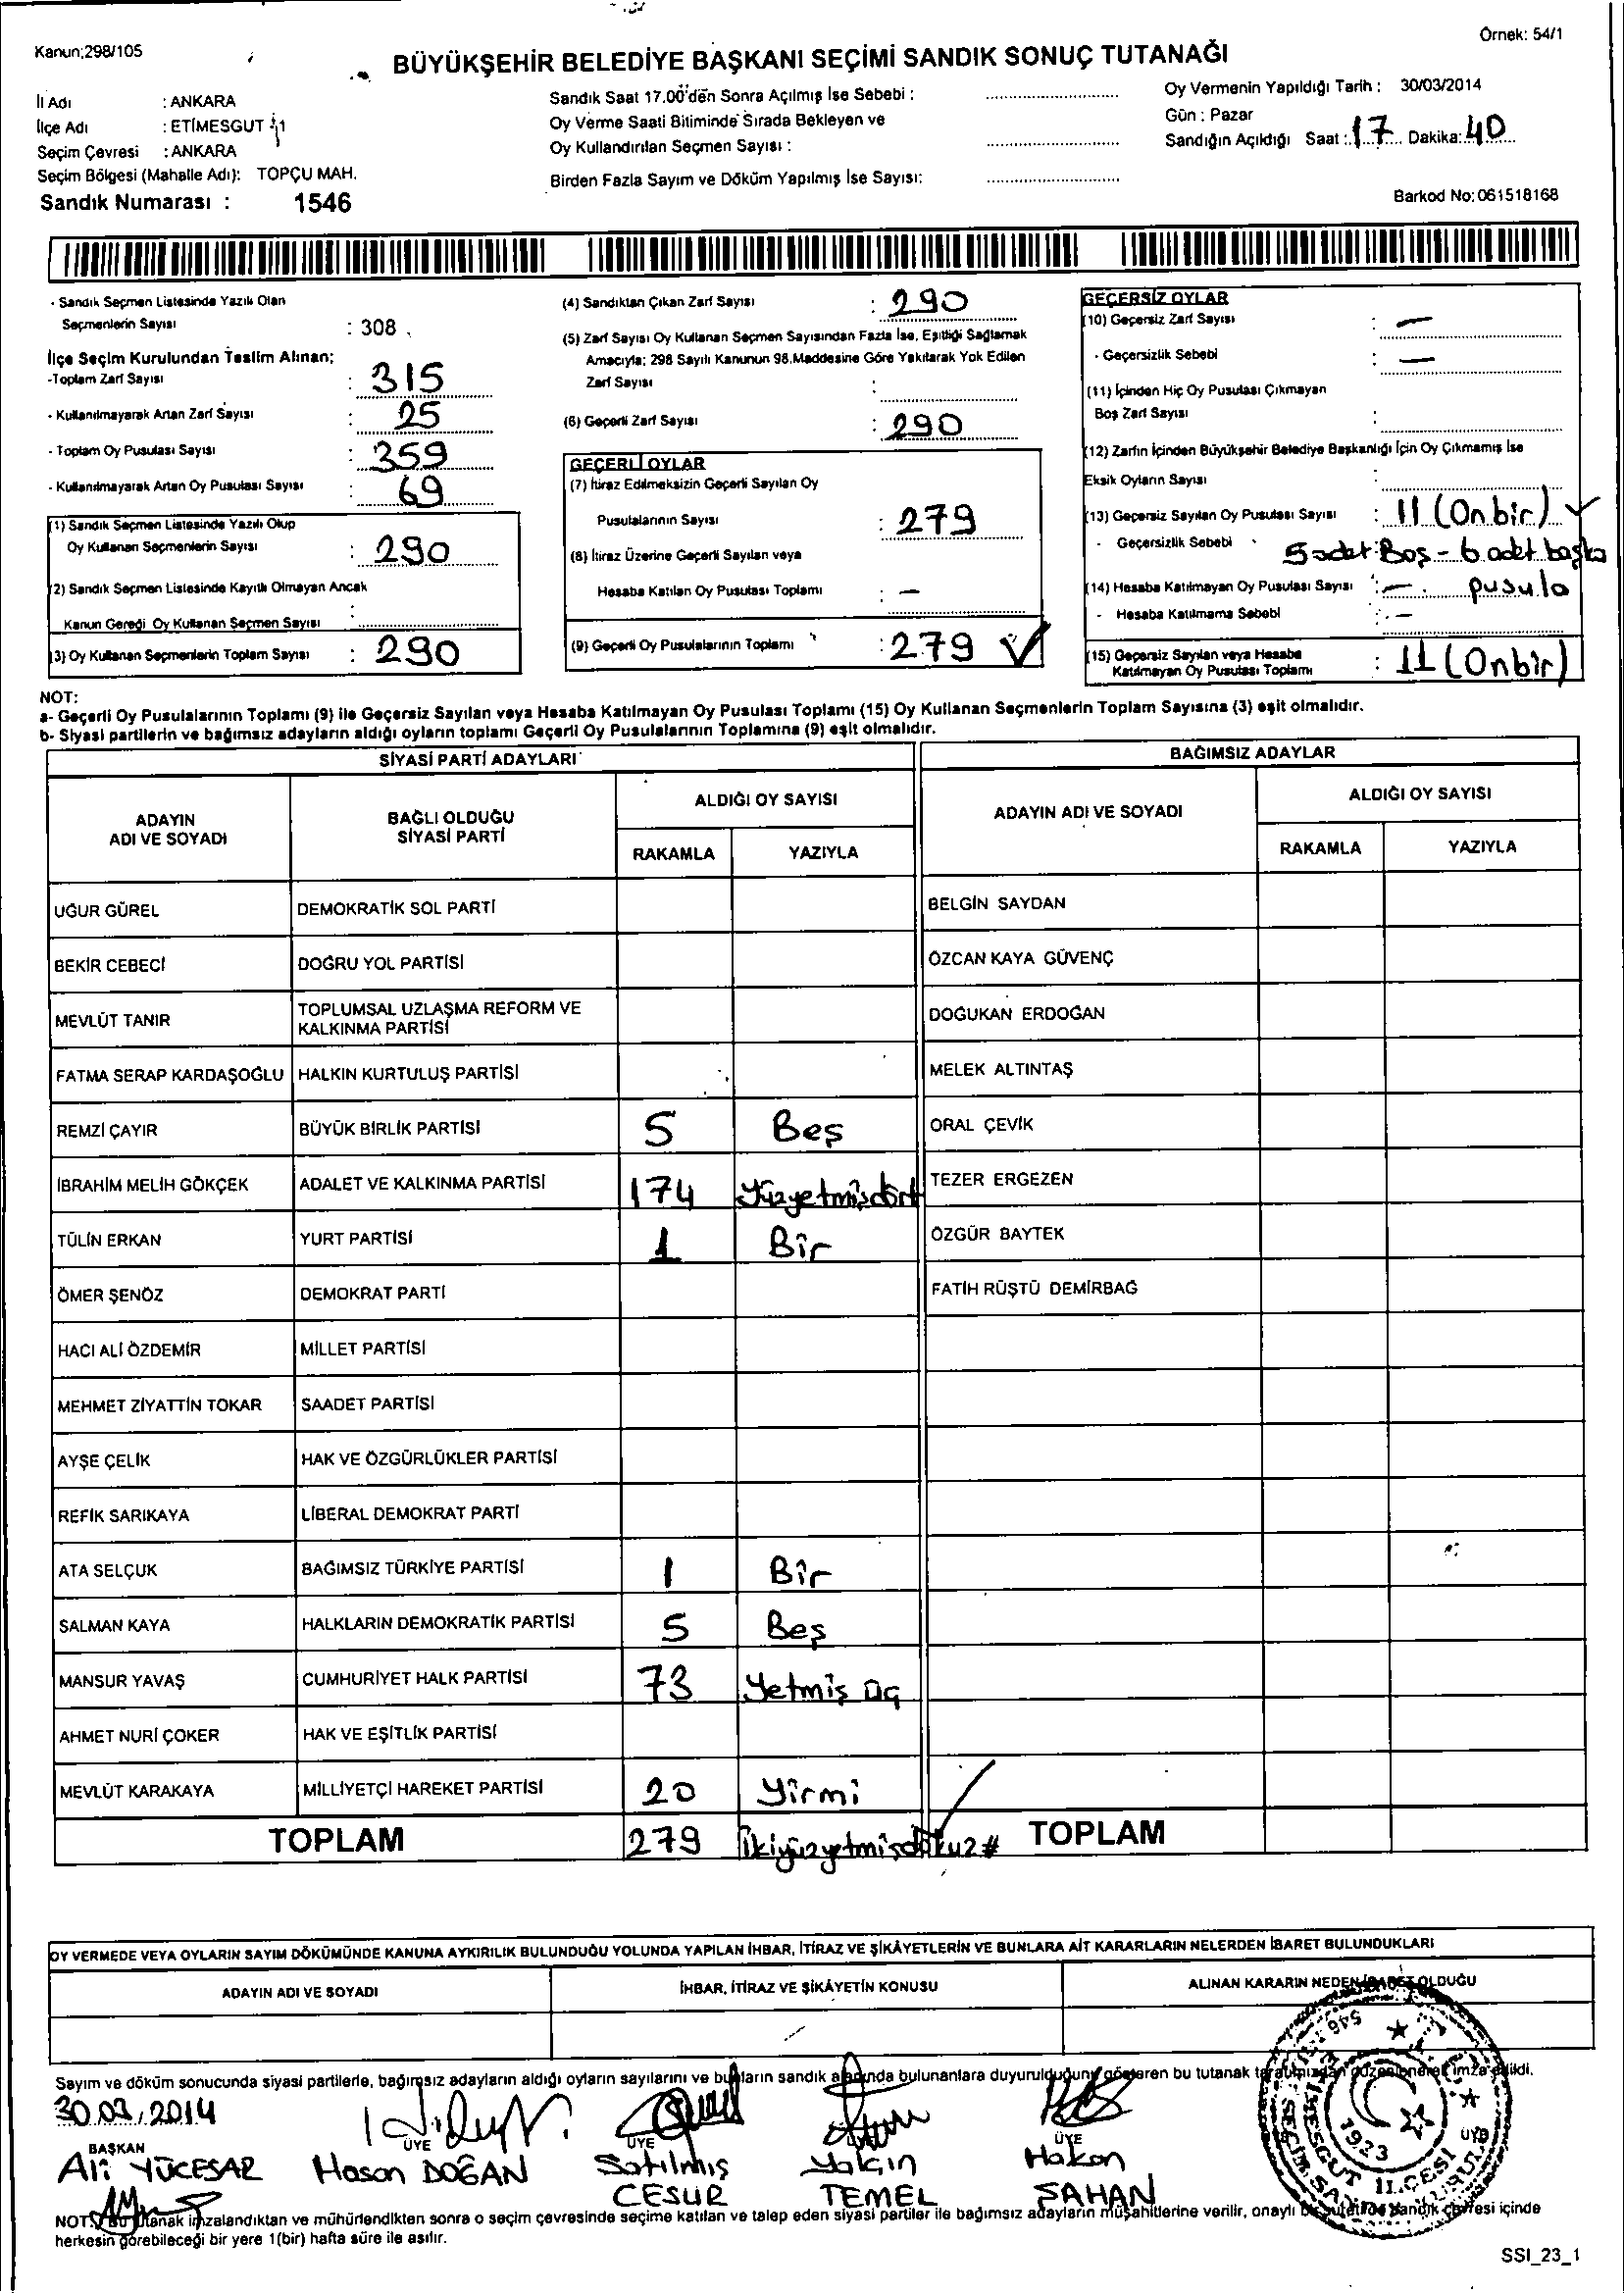 Örnek: 54/1
Kanun;298/105
BÜYÜKŞEHİR BELEDİYE BAŞKANI SEÇİMİ SANDIK SONUÇ TUTANAĞI
İl Adı : ANKARA
İlçe Adı : ETİMESGUT 1
Seçim Çevresi : ANKARA
Seçim Bölgesi (Mahalle Adı): TOPÇU MAH.
Sandık Numarası : 1546
Sandık Saat 17.00'den Sonra Açılmış İse Sebebi :
Oy Verme Saati Bitiminde Sırada Bekleyen ve
Oy Kullandırılan Seçmen Sayısı :
Birden Fazla Sayım ve Döküm Yapılmış İse Sayısı:
Oy Vermenin Yapıldığı Tarih : 30/03/2014
Gün : Pazar
Sandığın Açıldığı Saat : 17 Dakika: 40
Barkod No: 061518168
- Sandık Seçmen Listesinde Yazılı Olan
Seçmenlerin Sayısı : 308
İlçe Seçim Kurulundan Teslim Alınan;
-Toplam Zarf Sayısı : 315
- Kullanılmayarak Artan Zarf Sayısı : 25
- Toplam Oy Pusulası Sayısı : 359
- Kullanılmayarak Artan Oy Pusulası Sayısı : 69
(1) Sandık Seçmen Listesinde Yazılı Olup
Oy Kullanan Seçmenlerin Sayısı : 290
(2) Sandık Seçmen Listesinde Kayıtlı Olmayan Ancak
Kanun Gereği Oy Kullanan Seçmen Sayısı :
(3) Oy Kullanan Seçmenlerin Toplam Sayısı : 290
(4) Sandıktan Çıkan Zarf Sayısı : 290
(5) Zarf Sayısı Oy Kullanan Seçmen Sayısından Fazla İse, Eşitliği Sağlamak
Amacıyla; 298 Sayılı Kanunun 98.Maddesine Göre Yakılarak Yok Edilen
Zarf Sayısı :
(6) Geçerli Zarf Sayısı : 290
GEÇERLİ OYLAR
(7) İtiraz Edilmeksizin Geçerli Sayılan Oy
Pusulalarının Sayısı : 279
(8) İtiraz Üzerine Geçerli Sayılan veya
Hesaba Katılan Oy Pusulası Toplamı : —
(9) Geçerli Oy Pusulalarının Toplamı : 279 ✓
GEÇERSİZ OYLAR
(10) Geçersiz Zarf Sayısı : —
- Geçersizlik Sebebi : —
(11) İçinden Hiç Oy Pusulası Çıkmayan
Boş Zarf Sayısı :
(12) Zarfın İçinden Büyükşehir Belediye Başkanlığı İçin Oy Çıkmamış İse
Eksik Oyların Sayısı :
(13) Geçersiz Sayılan Oy Pusulası Sayısı : 11 (Onbir) ✓
- Geçersizlik Sebebi 5 adet Boş - 6 adet başka
(14) Hesaba Katılmayan Oy Pusulası Sayısı : — pusula
- Hesaba Katılmama Sebebi : —
(15) Geçersiz Sayılan veya Hesaba
Katılmayan Oy Pusulası Toplamı : 11 (Onbir)
NOT:
a- Geçerli Oy Pusulalarının Toplamı (9) ile Geçersiz Sayılan veya Hesaba Katılmayan Oy Pusulası Toplamı (15) Oy Kullanan Seçmenlerin Toplam Sayısına (3) eşit olmalıdır.
b- Siyasi partilerin ve bağımsız adayların aldığı oyların toplamı Geçerli Oy Pusulalarının Toplamına (9) eşit olmalıdır.
SİYASİ PARTİ ADAYLARI
BAĞIMSIZ ADAYLAR
ADAYIN ADI VE SOYADI
BAĞLI OLDUĞU SİYASİ PARTİ
ALDIĞI OY SAYISI
RAKAMLA YAZIYLA
ADAYIN ADI VE SOYADI
ALDIĞI OY SAYISI
RAKAMLA YAZIYLA
UĞUR GÜREL DEMOKRATİK SOL PARTİ BELGİN SAYDAN
BEKİR CEBECİ DOĞRU YOL PARTİSİ ÖZCAN KAYA GÜVENÇ
MEVLÜT TANIR TOPLUMSAL UZLAŞMA REFORM VE KALKINMA PARTİSİ DOĞUKAN ERDOĞAN
FATMA SERAP KARDAŞOĞLU HALKIN KURTULUŞ PARTİSİ MELEK ALTINTAŞ
REMZİ ÇAYIR BÜYÜK BİRLİK PARTİSİ 5 Beş ORAL ÇEVİK
İBRAHİM MELİH GÖKÇEK ADALET VE KALKINMA PARTİSİ 174 Yüzyetmişdört TEZER ERGEZEN
TÜLİN ERKAN YURT PARTİSİ 1 Bir ÖZGÜR BAYTEK
ÖMER ŞENÖZ DEMOKRAT PARTİ FATİH RÜŞTÜ DEMİRBAĞ
HACI ALİ ÖZDEMİR MİLLET PARTİSİ
MEHMET ZİYATTİN TOKAR SAADET PARTİSİ
AYŞE ÇELİK HAK VE ÖZGÜRLÜKLER PARTİSİ
REFİK SARIKAYA LİBERAL DEMOKRAT PARTİ
ATA SELÇUK BAĞIMSIZ TÜRKİYE PARTİSİ 1 Bir
SALMAN KAYA HALKLARIN DEMOKRATİK PARTİSİ 5 Beş
MANSUR YAVAŞ CUMHURİYET HALK PARTİSİ 73 Yetmiş üç
AHMET NURİ ÇOKER HAK VE EŞİTLİK PARTİSİ
MEVLÜT KARAKAYA MİLLİYETÇİ HAREKET PARTİSİ 20 Yirmi
TOPLAM 279 İkiyüzyetmişdokuz # TOPLAM
OY VERMEDE VEYA OYLARIN SAYIM DÖKÜMÜNDE KANUNA AYKIRILIK BULUNDUĞU YOLUNDA YAPILAN İHBAR, İTİRAZ VE ŞİKÂYETLERİN VE BUNLARA AİT KARARLARIN NELERDEN İBARET BULUNDUKLARI
ADAYIN ADI VE SOYADI İHBAR, İTİRAZ VE ŞİKÂYETİN KONUSU ALINAN KARARIN NEDEN İBARET OLDUĞU
Sayım ve döküm sonucunda siyasi partilerle, bağımsız adayların aldığı oyların sayılarını ve bunların sandık alanında bulunanlara duyurulduğunu gösteren bu tutanak tarafımızdan düzenlenerek imza edildi.
30.03.2014
BAŞKAN ÜYE ÜYE ÜYE ÜYE
Ali YÜCESAR Hasan DOĞAN Satılmış CESUR Yalçın TEMEL Hakan ŞAHAN
1923 ETİMESGUT İLÇESİ
NOT: Bu tutanak imzalandıktan ve mühürlendikten sonra o seçim çevresinde seçime katılan ve talep eden siyasi partiler ile bağımsız adayların müşahitlerine verilir, onaylı bir sureti de sandık çevresi içinde
herkesin görebileceği bir yere 1(bir) hafta süre ile asılır.
SSI_23_1